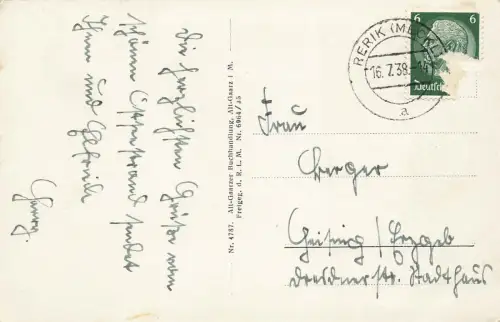 Die herzlichsten Grüße vom
schönen Ostseestrand sendet
Ihnen und
Georg.
Nr. 4787. Alt-Gaarzer Buchhandlung, Alt-Gaarz i M.
Freigeg. d. R. L. M. Nr. 6964/35
RERIK (MECKL)
16.7.38
a
6 6
Deutsch
Frau
Berger
Geising/Erzgeb
Dresdnerstr. Stadthaus